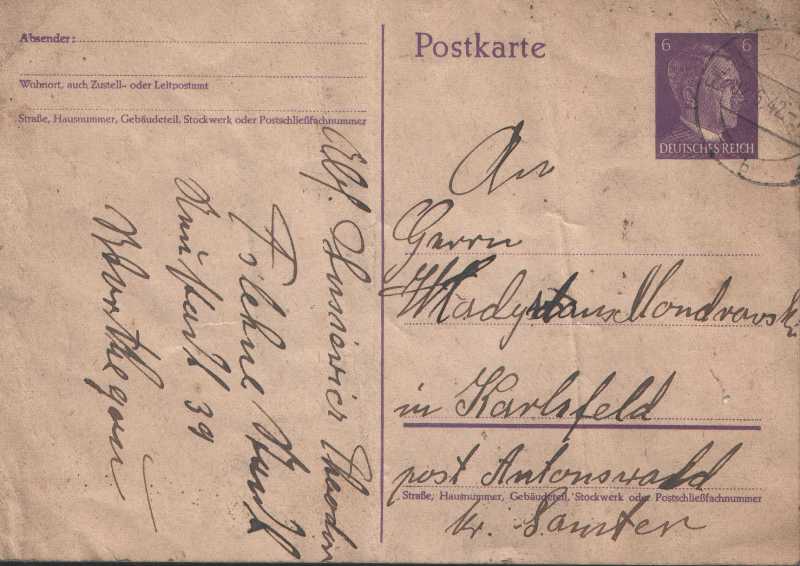 Absender:
Wohnort, auch Zustell- oder Leitpostamt
Straße, Hausnummer, Gebäudeteil, Stockwerk oder Postschließfachnummer
Abs.
Theodor
Filehne
39
Warthegau
Postkarte
6 6
DEUTSCHES REICH
42
b
An
Herrn
Wladyslaus Mondrawski
in Karlsfeld
post Antonswald
Straße, Hausnummer, Gebäudeteil, Stockwerk oder Postschließfachnummer
Kr. Samter